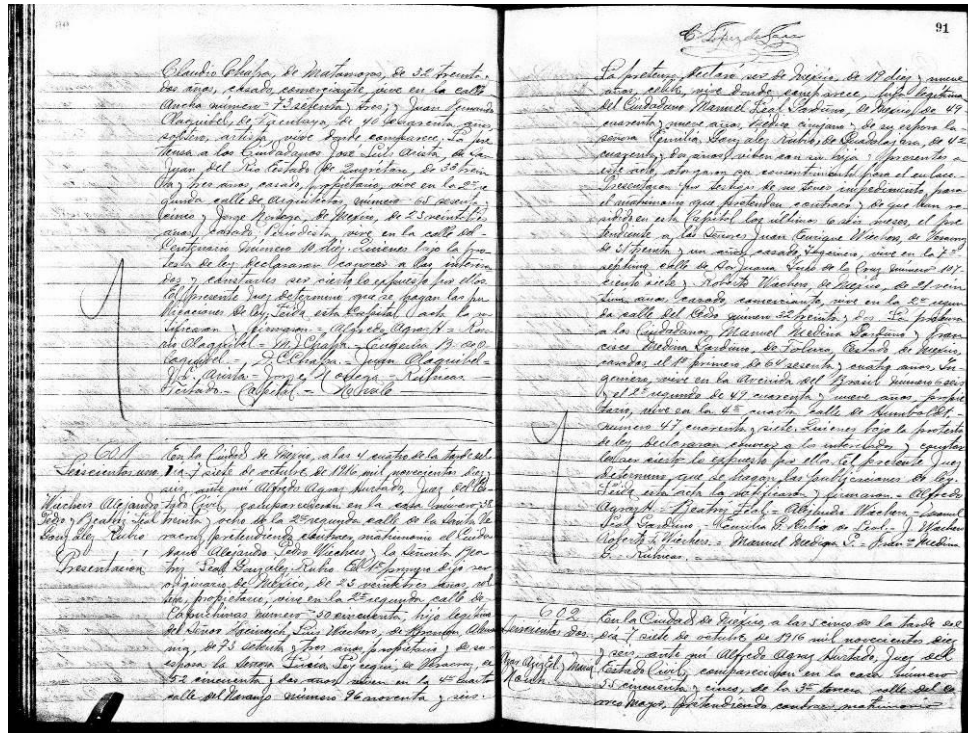 Claudio Chapa, de Matamoros, de 32 treinta y
dos años, casado, comerciante, vive en la calle
Ancha número 73 setenta y tres; y Juan Fernando
Olaquibel, de Tacubaya, de 40 cuarenta años,
soltero, artista, vive donde comparece. La pre
tensa a los Ciudadanos José Luis Arista, de San
Juan del Río Estado de Querétaro, de 33 trein
ta y tres años, casado, propietario, vive en la 2ª se
gunda calle de Arquitectos, número 65 sesenta y
cinco y Jorge Noriega, de Mejico, de 23 veintitrés
años, casado Periodista, vive en la calle del
Centenario número 10 diez. Quienes bajo la pro
testa de ley declararon conocer a los interesa
dos y constarles ser cierto lo expuesto por ellos.
El presente Juez determinó que se hagan las pu
blicaciones de ley. Leída esta acta la ra
tificaron y firmaron.- Alfredo Agraz H.- Ra
Olaquibel.- M. J. Chapa.- Eugenia B. de O
laquibel.- J. C. Chapa.- Juan Olaquibel.-
J. L. Arista.- Jorge Noriega.- Rúbricas.-
Testado.- Capital.- No vale
601
Seiscientos uno.
Wiechers Alejandro
Pedro y Beatriz Leal
González Rubio
Presentación
En la Ciudad de Méjico, a las 4 cuatro de la tarde del
día 7 siete de octubre de 1916 mil novecientos diez y
seis, ante mí Alfredo Agraz Hurtado, Juez del Es
tado Civil, comparecieron en la casa número 38
treinta y ocho de la 2ª segunda calle de la Santa Ve
racruz, pretendiendo contraer matrimonio el Ciuda
dano Alejandro Pedro Wiechers y la Señorita Bea
triz Leal González Rubio. El 1º primero dijo ser
originario de México, de 23 veintitrés años, sol
tero, propietario, vive en la 2ª segunda calle de
Capuchinas número 50 cincuenta, hijo legítimo
del Señor Heinrich Luis Wiechers, de Bremen, Alema
nia, de 73 setenta y tres años propietario y de su
esposa la Señora de Veracruz, de
52 cincuenta y dos años, viven en la 4ª cuarta
calle del Naranjo número 96 noventa y seis.
91
La pretensa, declaró ser de Mejico, de 19 diez y nueve
años, célibe, vive donde comparece, hija legítima
del Ciudadano Manuel Leal Garduño, de Mejico, de 49
cuarenta y nueve años, Médico cirujano y de su esposa la
señora Emilia González Rubio, de Guadalajara, de 42
cuarenta y dos años, viven con su hija y presentes a
este acto, otorgaron su consentimiento para el enlace.
Presentaron por testigos de no tener impedimento, para
el matrimonio que pretenden contraer y de que han re
sidido en esta Capital los últimos 6 seis meses, el pre
tendiente a los Señores Juan Enrique Wiechers, de Veracruz
de 31 treinta y un años, casado, Ingeniero, vive en la 7ª
séptima calle de Sor Juana Inés de la Cruz número 107
ciento siete y Roberto Wiechers, de Mejico, de 21 vein
tiún años, casado, comerciante, vive en la 2ª segun
da calle del Cedro número 32 treinta y dos. La pretensa
a los Ciudadanos Manuel Medina Garduño y Fran
cisco Medina Garduño, de Toluca, Estado de Mejico,
casados, el 1º primero de 64 sesenta y cuatro años, In
geniero, vive en la Avenida del Brasil número 6 seis
y el 2º segundo de 49 cuarenta y nueve años, propie
tario, vive en la 4ª cuarta calle de Humboldt
número 47 cuarenta y siete. Quienes bajo la protesta
de ley declararon conocer a los interesados y constar
les ser cierto lo expuesto por ellos. El presente Juez
determinó que se hagan las publicaciones de ley.
Leída esta acta la ratificaron y firmaron.- Alfredo
Agraz H.- Beatriz Leal.- Alejandro Wiechers.- Manuel
Leal Garduño.- Emilia G. Rubio de Leal.- J. Wiechers
Roberto L. Wiechers.- Manuel Medina G.- Franco Medina
G.- Rúbricas.-
602
Seiscientos dos.
En la Ciudad de Mejico, a las 5 cinco de la tarde del
día 7 siete de octubre de 1916 mil novecientos diez
y seis, ante mí Alfredo Agraz Hurtado, Juez del
Estado Civil, comparecieron en la casa número
55 cincuenta y cinco, de la 3ª tercera calle del Co
rreo Mayor, pretendiendo contraer matrimonio